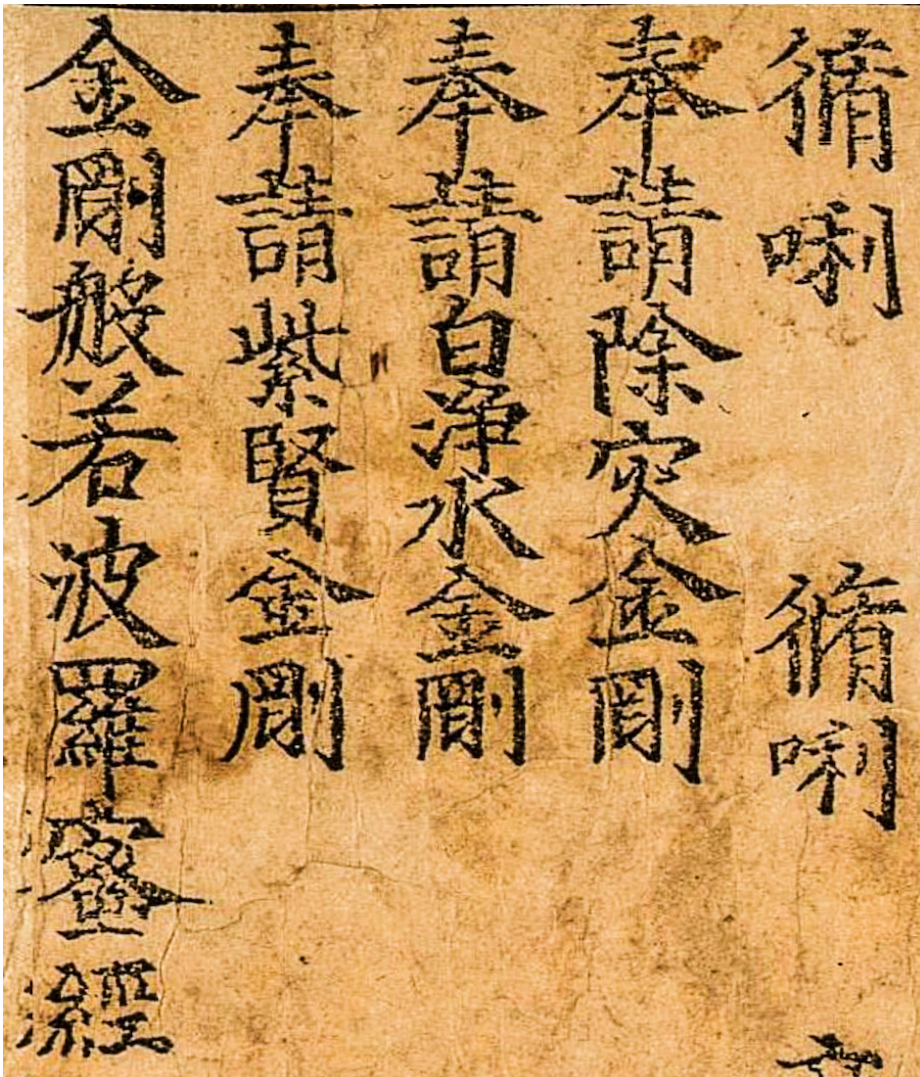 脩唎 脩唎
奉請除灾金剛
奉請白浄水金剛
奉請紫賢金剛
金剛般若波羅蜜經